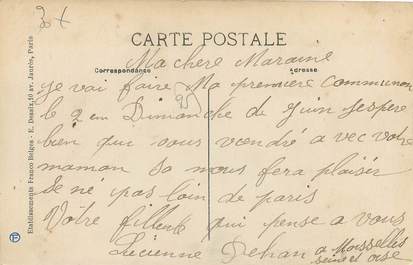 30 X
CARTE POSTALE
Ma chere Maraine
Correspondance Adresse
je vai faire Ma premiere Communion
95
le 2 em Dimanche de juin jespere
bien que vous vendré avec votre
maman sa nous fera plaisir
se né pas loin de paris
Votre filleule qui pense a vous
Lucienne Jehan a Moisselles
seine et oise
Etablissements Franco Belges - E. Desaix, 10 av. Jaurès, Paris